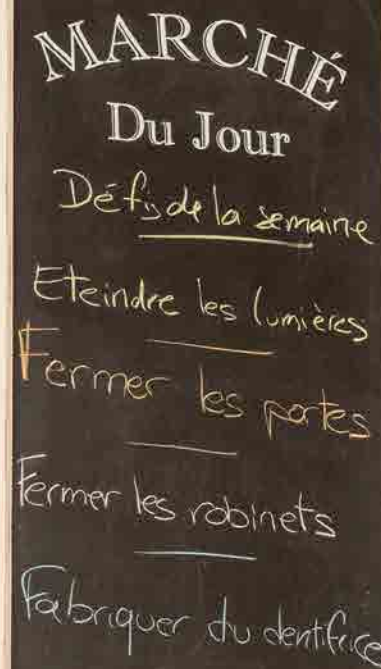 MARCHÉ
Du Jour
Défis de la semaine
Eteindre les lumières
Fermer les portes
Fermer les robinets
Fabriquer du dentifrice